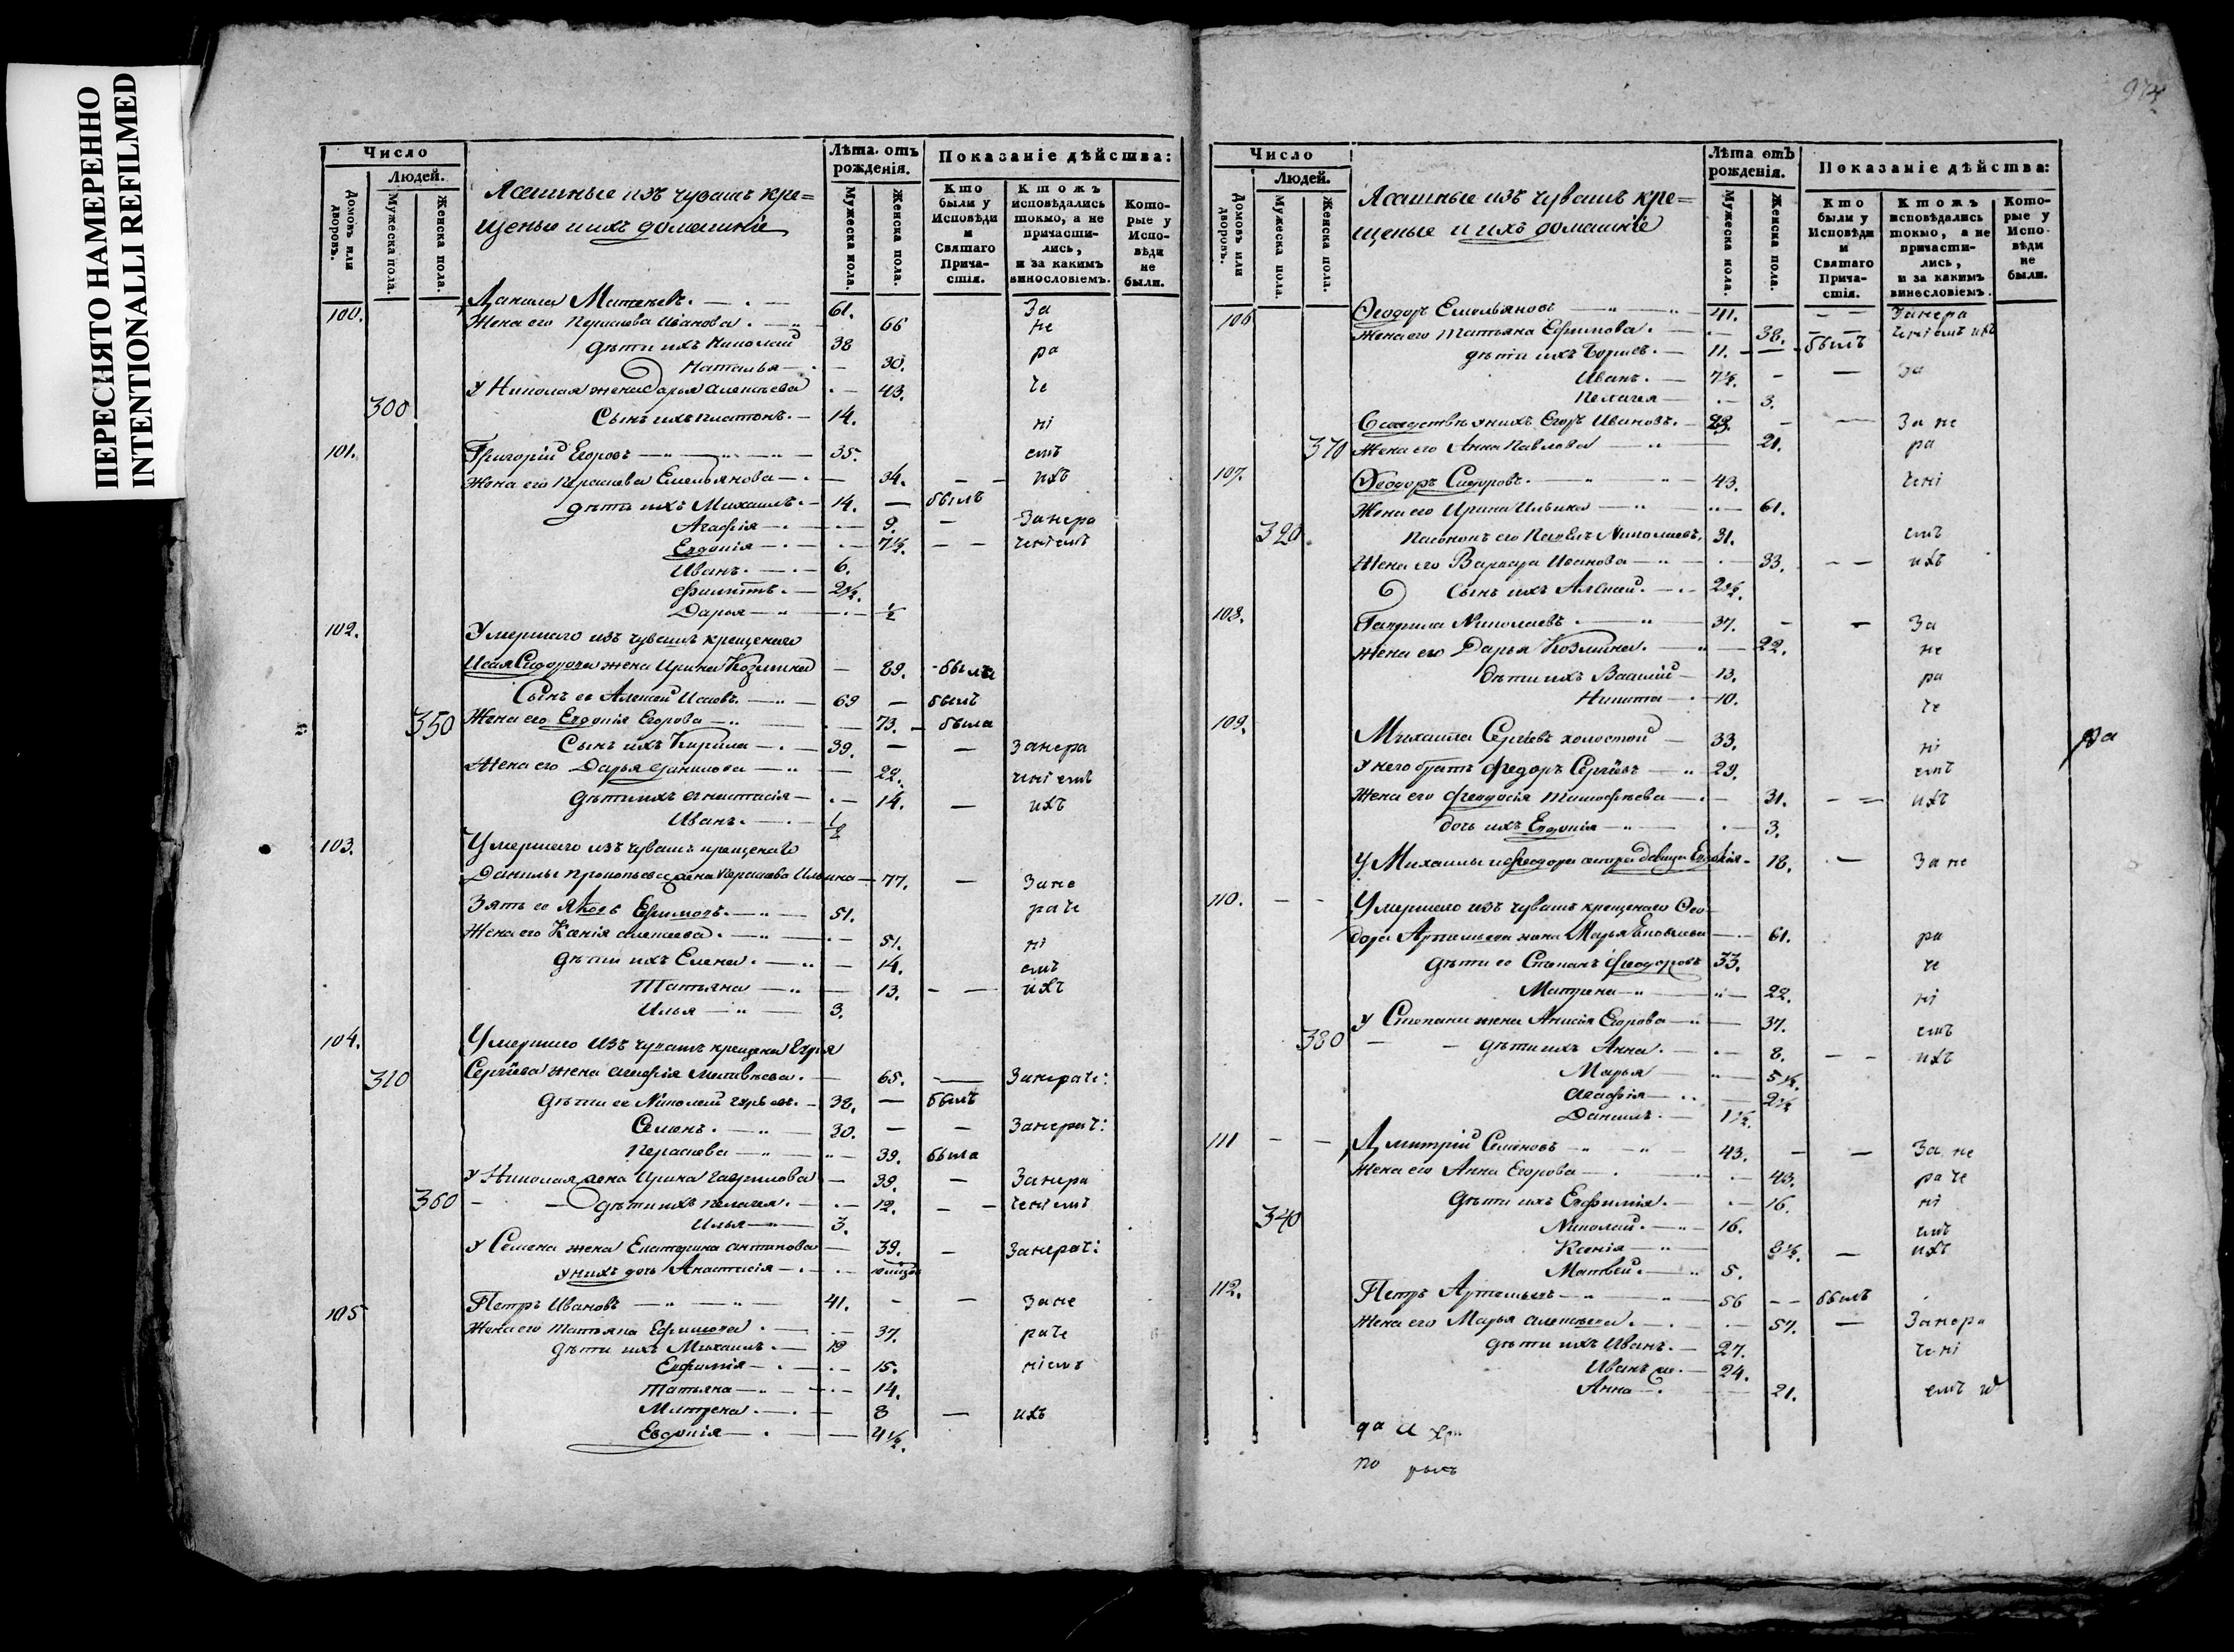 ПЕРЕСНЯТО НАМЕРЕННО
INTENTIONALLI REFILMED
Число
Людей.
Домовъ или дворовъ.
Мужеска пола.
Женска пола.
Лашные изъ чувашъ кре=
щеные и ихъ домашніе
Лѣта отъ рожденія.
Мужеска пола.
Женска пола.
Показаніе дѣйства:
Кто были у Исповѣди и Святаго Причастія.
Ктожъ исповѣдались токмо, а не причастились, и за какимъ винословіемъ.
Которые у Исповѣди не были.
100. Данила 61. За
Жена его Параскева Иванова 66 не
дѣти ихъ Николай 38 ра
Наталья 30.
У Николая жена Дарья Алексѣева 43. че
300 Сынъ ихъ Платонъ 14. ні
101. Григорій Егоровъ 35. емъ
Жена его Параскева Емельянова 34. ихъ
дѣти ихъ Михаилъ 14. былъ
Агафія 9. Занера
Евдокія 7½.ченіемъ
Иванъ 6.
Филиппъ 2½.
Дарья ½
102. Умершаго изъ чувашъ крещенаго
Исая Сидорова жена Ирина Козмина 89. была
Сынъ ее Алексей Исаевъ 69 былъ
350 Жена его Евдокія Егорова 73. была
Сынъ ихъ Кирила 39. Занера
Жена его Дарья Данилова 22. ченіемъ
дѣти ихъ Анастасія 14. ихъ
Иванъ ½
103. Умершего изъ чувашъ крещенаго
Данилы Прокопьева жена Параскева Ильина 77. Зане
Зять ее Яковъ Ефимовъ 51. раче
Жена его Ксенія Алексеева 51. ні
дѣти ихъ Елена 14. емъ
Татьяна 13. ихъ
Илья 3.
104. Умершего изъ чувашъ крещена
310 Сергѣева жена Агафія 65. Занераче:
дѣти ее Николай 38. былъ
Семенъ 30. Занерач:
Параскева 39. была
У Николая жена Ирина Гаврилова 39. Занера
360 дѣти ихъ Пелагея 12. ченіемъ
Илья 3.
У Семена жена Екатерина Антипова 39. Занерач:
У нихъ дочь Анастасія
105 Петръ Ивановъ 41. Зане
Жена его Татьяна Ефимова 37. раче
дѣти ихъ Михаилъ 19
Евфимія 15. ніемъ
Татьяна 14.
Матрена 8 ихъ
Евдокія 4½.
974
Число
Людей.
Домовъ или дворовъ.
Мужеска пола.
Женска пола.
Лашные изъ чувашъ кре=
щеные и ихъ домашніе
Лѣта отъ рожденія.
Мужеска пола.
Женска пола.
Показаніе дѣйства:
Кто были у Исповѣди и Святаго Причастія.
Ктожъ исповѣдались токмо, а не причастились, и за какимъ винословіемъ.
Которые у Исповѣди не были.
106 Ѳеодоръ Емельяновъ 41. Занера
Жена его Татьяна Ефимова 38. ченіемъ ихъ
дѣти ихъ Борисъ 11. былъ
Иванъ 7½. За
Пелагея 3.
у нихъ Егоръ Ивановъ 23. За не
370 Жена его Анна Павлова 21. ра
107. Ѳеодоръ Сидоровъ 43. чені
Жена его Ирина Ильина 61.
320 его Николаевъ 31. емъ
Жена его Варвара Иванова 33. ихъ
Сынъ ихъ Алексей 2½.
108. Гаврила Николаевъ 37. За
Жена его Дарья Козмина 22. не
дѣти ихъ Василій 13. ра
Никита 10. че
109. Михаила Сергѣевъ холостой 33. ні
У него братъ Федоръ Сергѣевъ 29. емъ
Жена его Феодосія Тимофѣева 31. ихъ
дочь ихъ Евдокія 3.
У Михаилы и Феодора сестра девица 18. За не
110. Умершего изъ чувашъ крещенаго Ѳео
дора Артемьева жена Марья Яковлева 61. ра
дѣти ее Степанъ Феодоровъ 33. че
Матрена 22. ні
У Степана жена Анисія Егорова 37. емъ
380 дѣти ихъ Анна 8. ихъ
Марья 5½
Агафія 2½
Данилъ 1½.
111 Дмитрій Семеновъ 43. За не
Жена его Анна Егорова 43. раче
дѣти ихъ Евфимія 16. ні
340 Николай 16. емъ
Ксенія 8½. ихъ
Матвей 5.
112. Петръ Артемьевъ 56 былъ
Жена его Марья Алексѣева 57. Занера
дѣти ихъ Иванъ 27. чені
Иванъ 24.
Анна 21. емъ